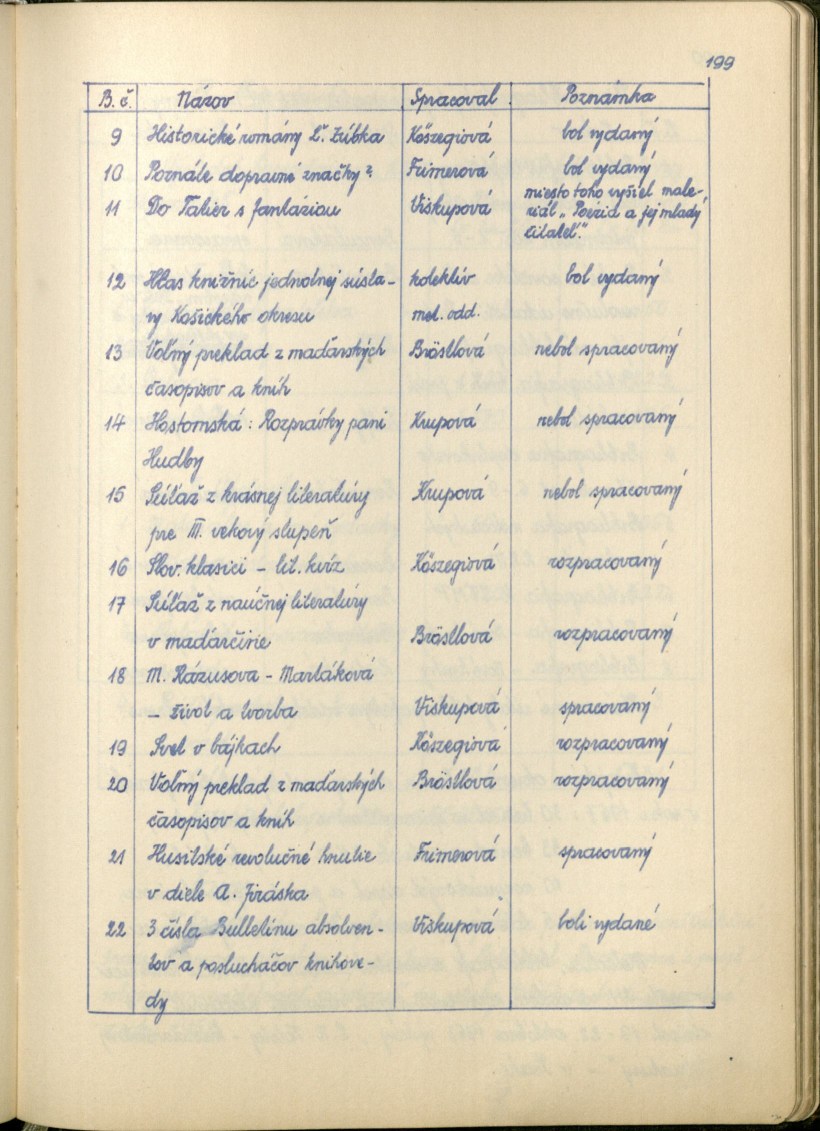 199
B. č. Názov Spracoval Poznámka
9 Historické romány Ľ. Zúbka Kőszegiová bol vydaný
10 Poznáte dopravné značky? Frimerová bol vydaný
11 Do Tatier s fantáziou Viskupová miesto toho vyšiel mate-
riál „Poézia a jej mladý
čitateľ."
12 Hlas knižníc jednotnej sústa- kolektív bol vydaný
vy Košického okresu met. odd.
13 Voľný preklad z maďarských Bröstlová nebol spracovaný
časopisov a kníh
14 Hostomská: Rozprávky pani Krupová nebol spracovaný
Hudby
15 Súťaž z krásnej literatúry Krupová nebol spracovaný
pre III. vekový stupeň
16 Slov. klasici - lit. kvíz Kőszegiová rozpracovaný
17 Súťaž z naučnej literatúry
v maďarčine Bröstlová rozpracovaný
18 M. Rázusova - Martáková
- život a tvorba Viskupová spracovaný
19 Svet v bájkach Kőszegiová rozpracovaný
20 Voľný preklad z maďarských Bröstlová rozpracovaný
časopisov a kníh
21 Husitské revolučné hnutie Frimerová spracovaný
v diele A. Jiráska
22 3 čísla Bulletinu absolven- Viskupová boli vydané
tov a poslucháčov knihove-
dy